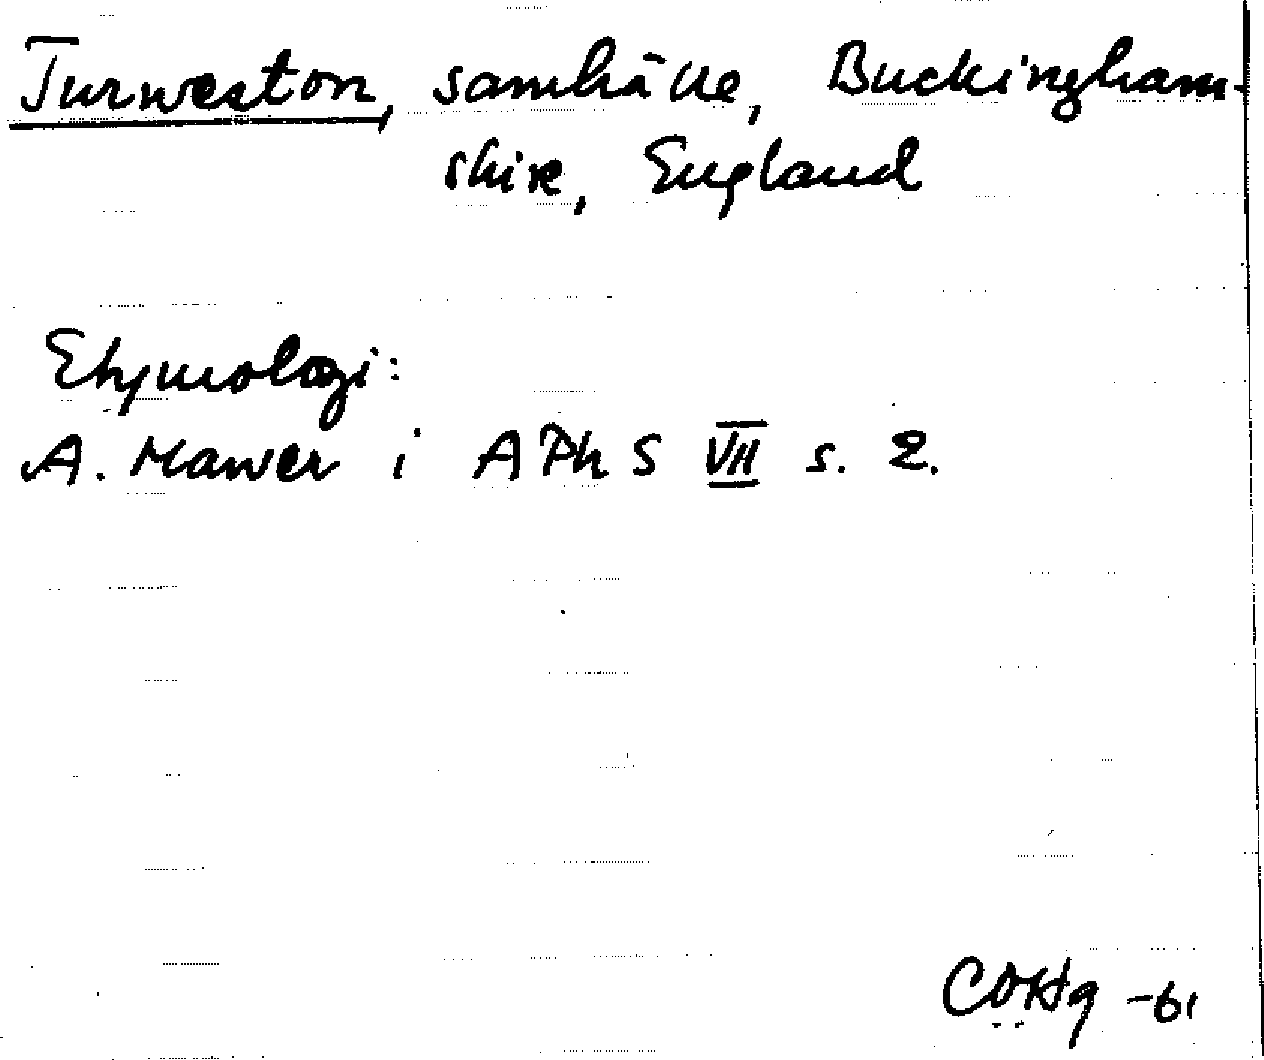 Turweston, samhälle, Buckingham-
shire, England
Etymologi:
A. Mawer i APhS VII s. 2.
COHg -61